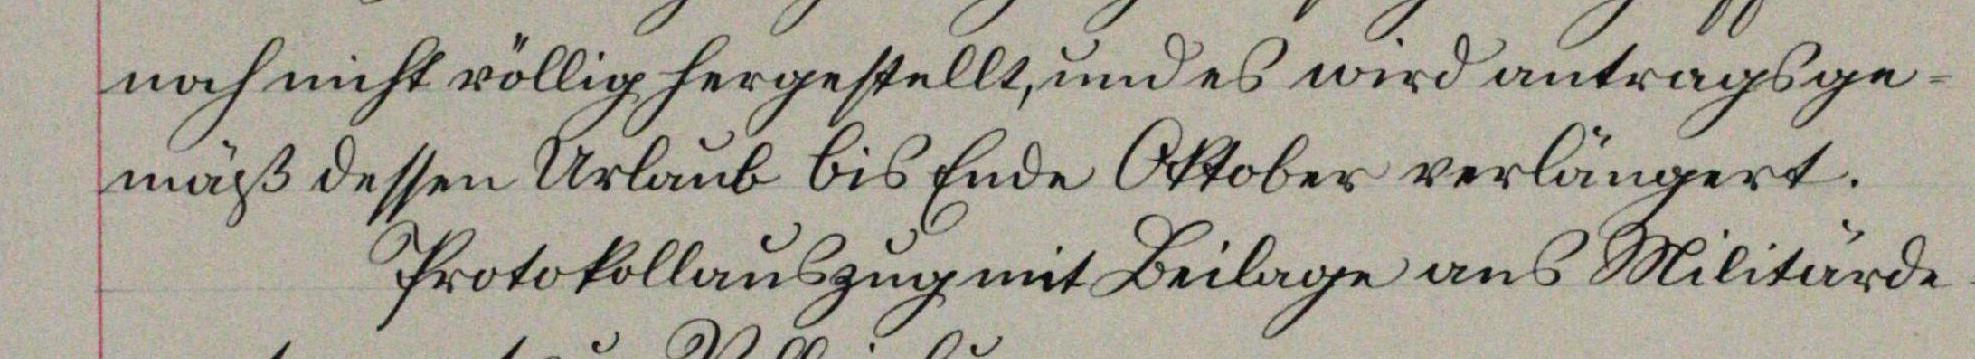 noch nicht völlig hergestellt, und es wird antragsge-
mäß dessen Urlaub bis Ende Oktober verlängert.
Protokollauszug mit Beilage ans Militärde-